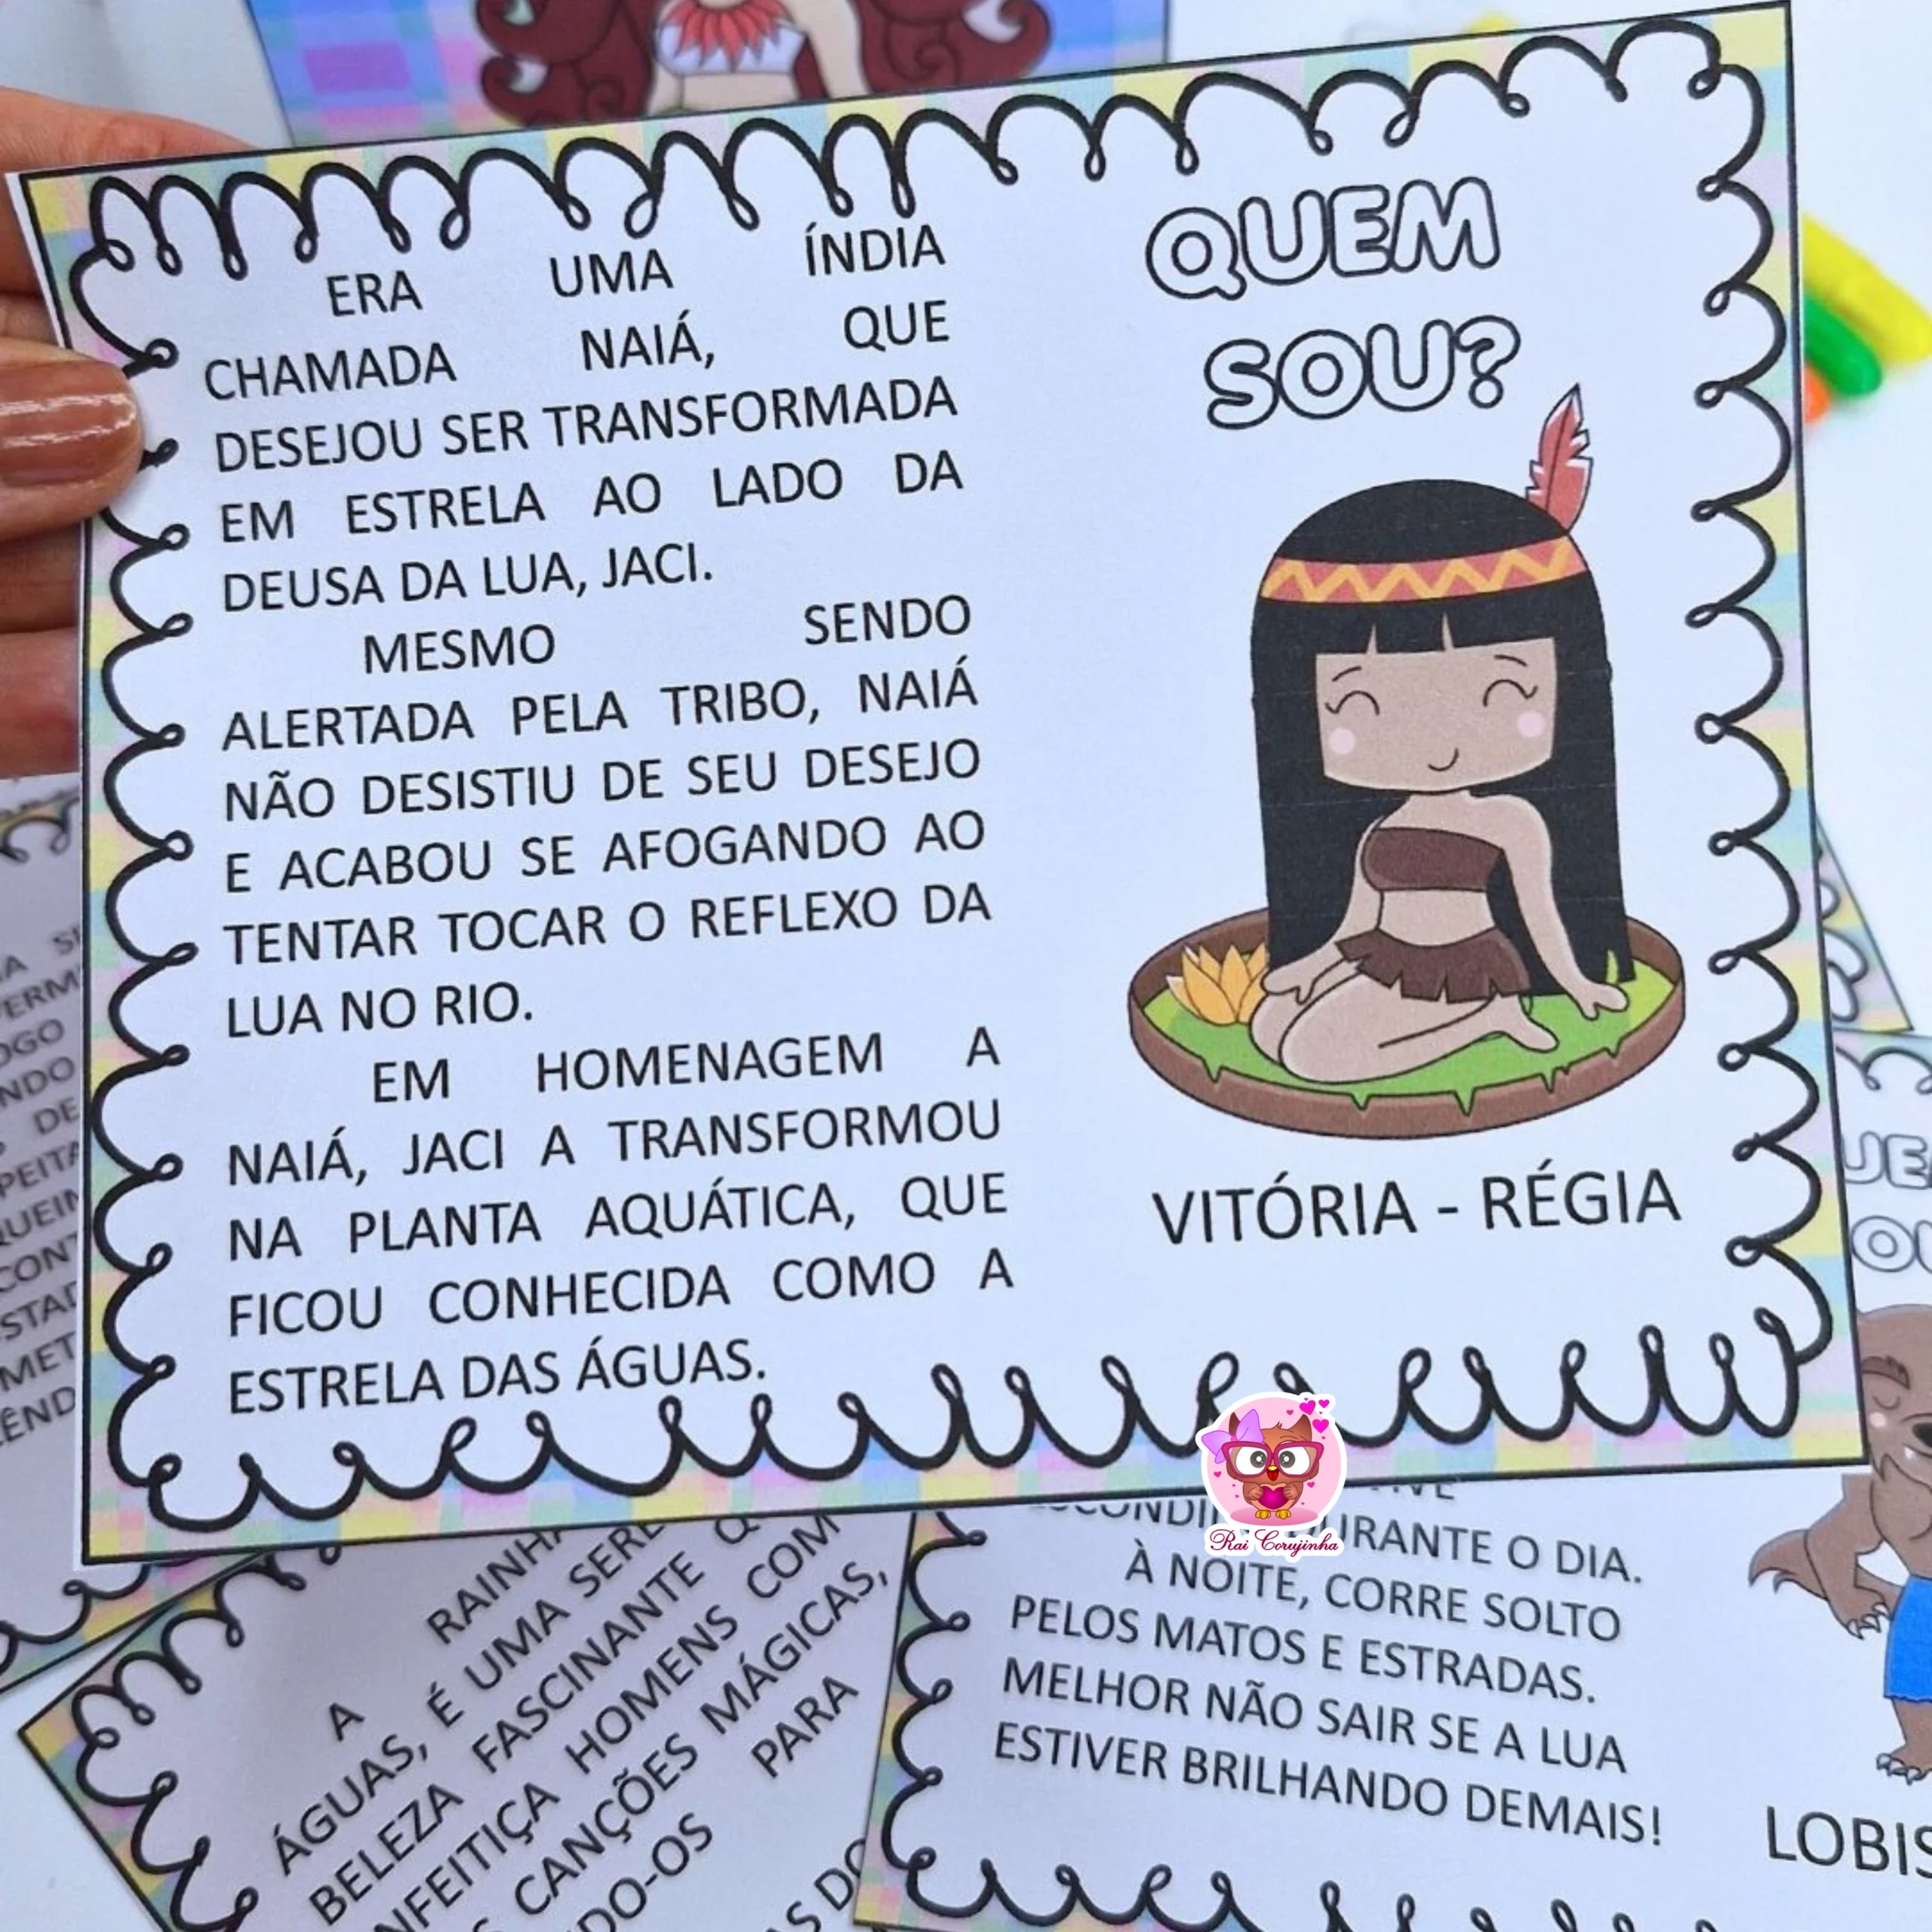 ERA UMA ÍNDIA
CHAMADA NAIÁ, QUE
DESEJOU SER TRANSFORMADA
EM ESTRELA AO LADO DA
DEUSA DA LUA, JACI.
MESMO SENDO
ALERTADA PELA TRIBO, NAIÁ
NÃO DESISTIU DE SEU DESEJO
E ACABOU SE AFOGANDO AO
TENTAR TOCAR O REFLEXO DA
LUA NO RIO.
EM HOMENAGEM A
NAIÁ, JACI A TRANSFORMOU
NA PLANTA AQUÁTICA, QUE
FICOU CONHECIDA COMO A
ESTRELA DAS ÁGUAS.
QUEM
SOU?
VITÓRIA - RÉGIA
Rai Corujinha
A RAINHA
ÁGUAS, É UMA
BELEZA FASCINANTE
HOMENS COM
CANÇÕES MÁGICAS,
PARA
O DIA.
À NOITE, CORRE SOLTO
PELOS MATOS E ESTRADAS.
MELHOR NÃO SAIR SE A LUA
ESTIVER BRILHANDO DEMAIS!